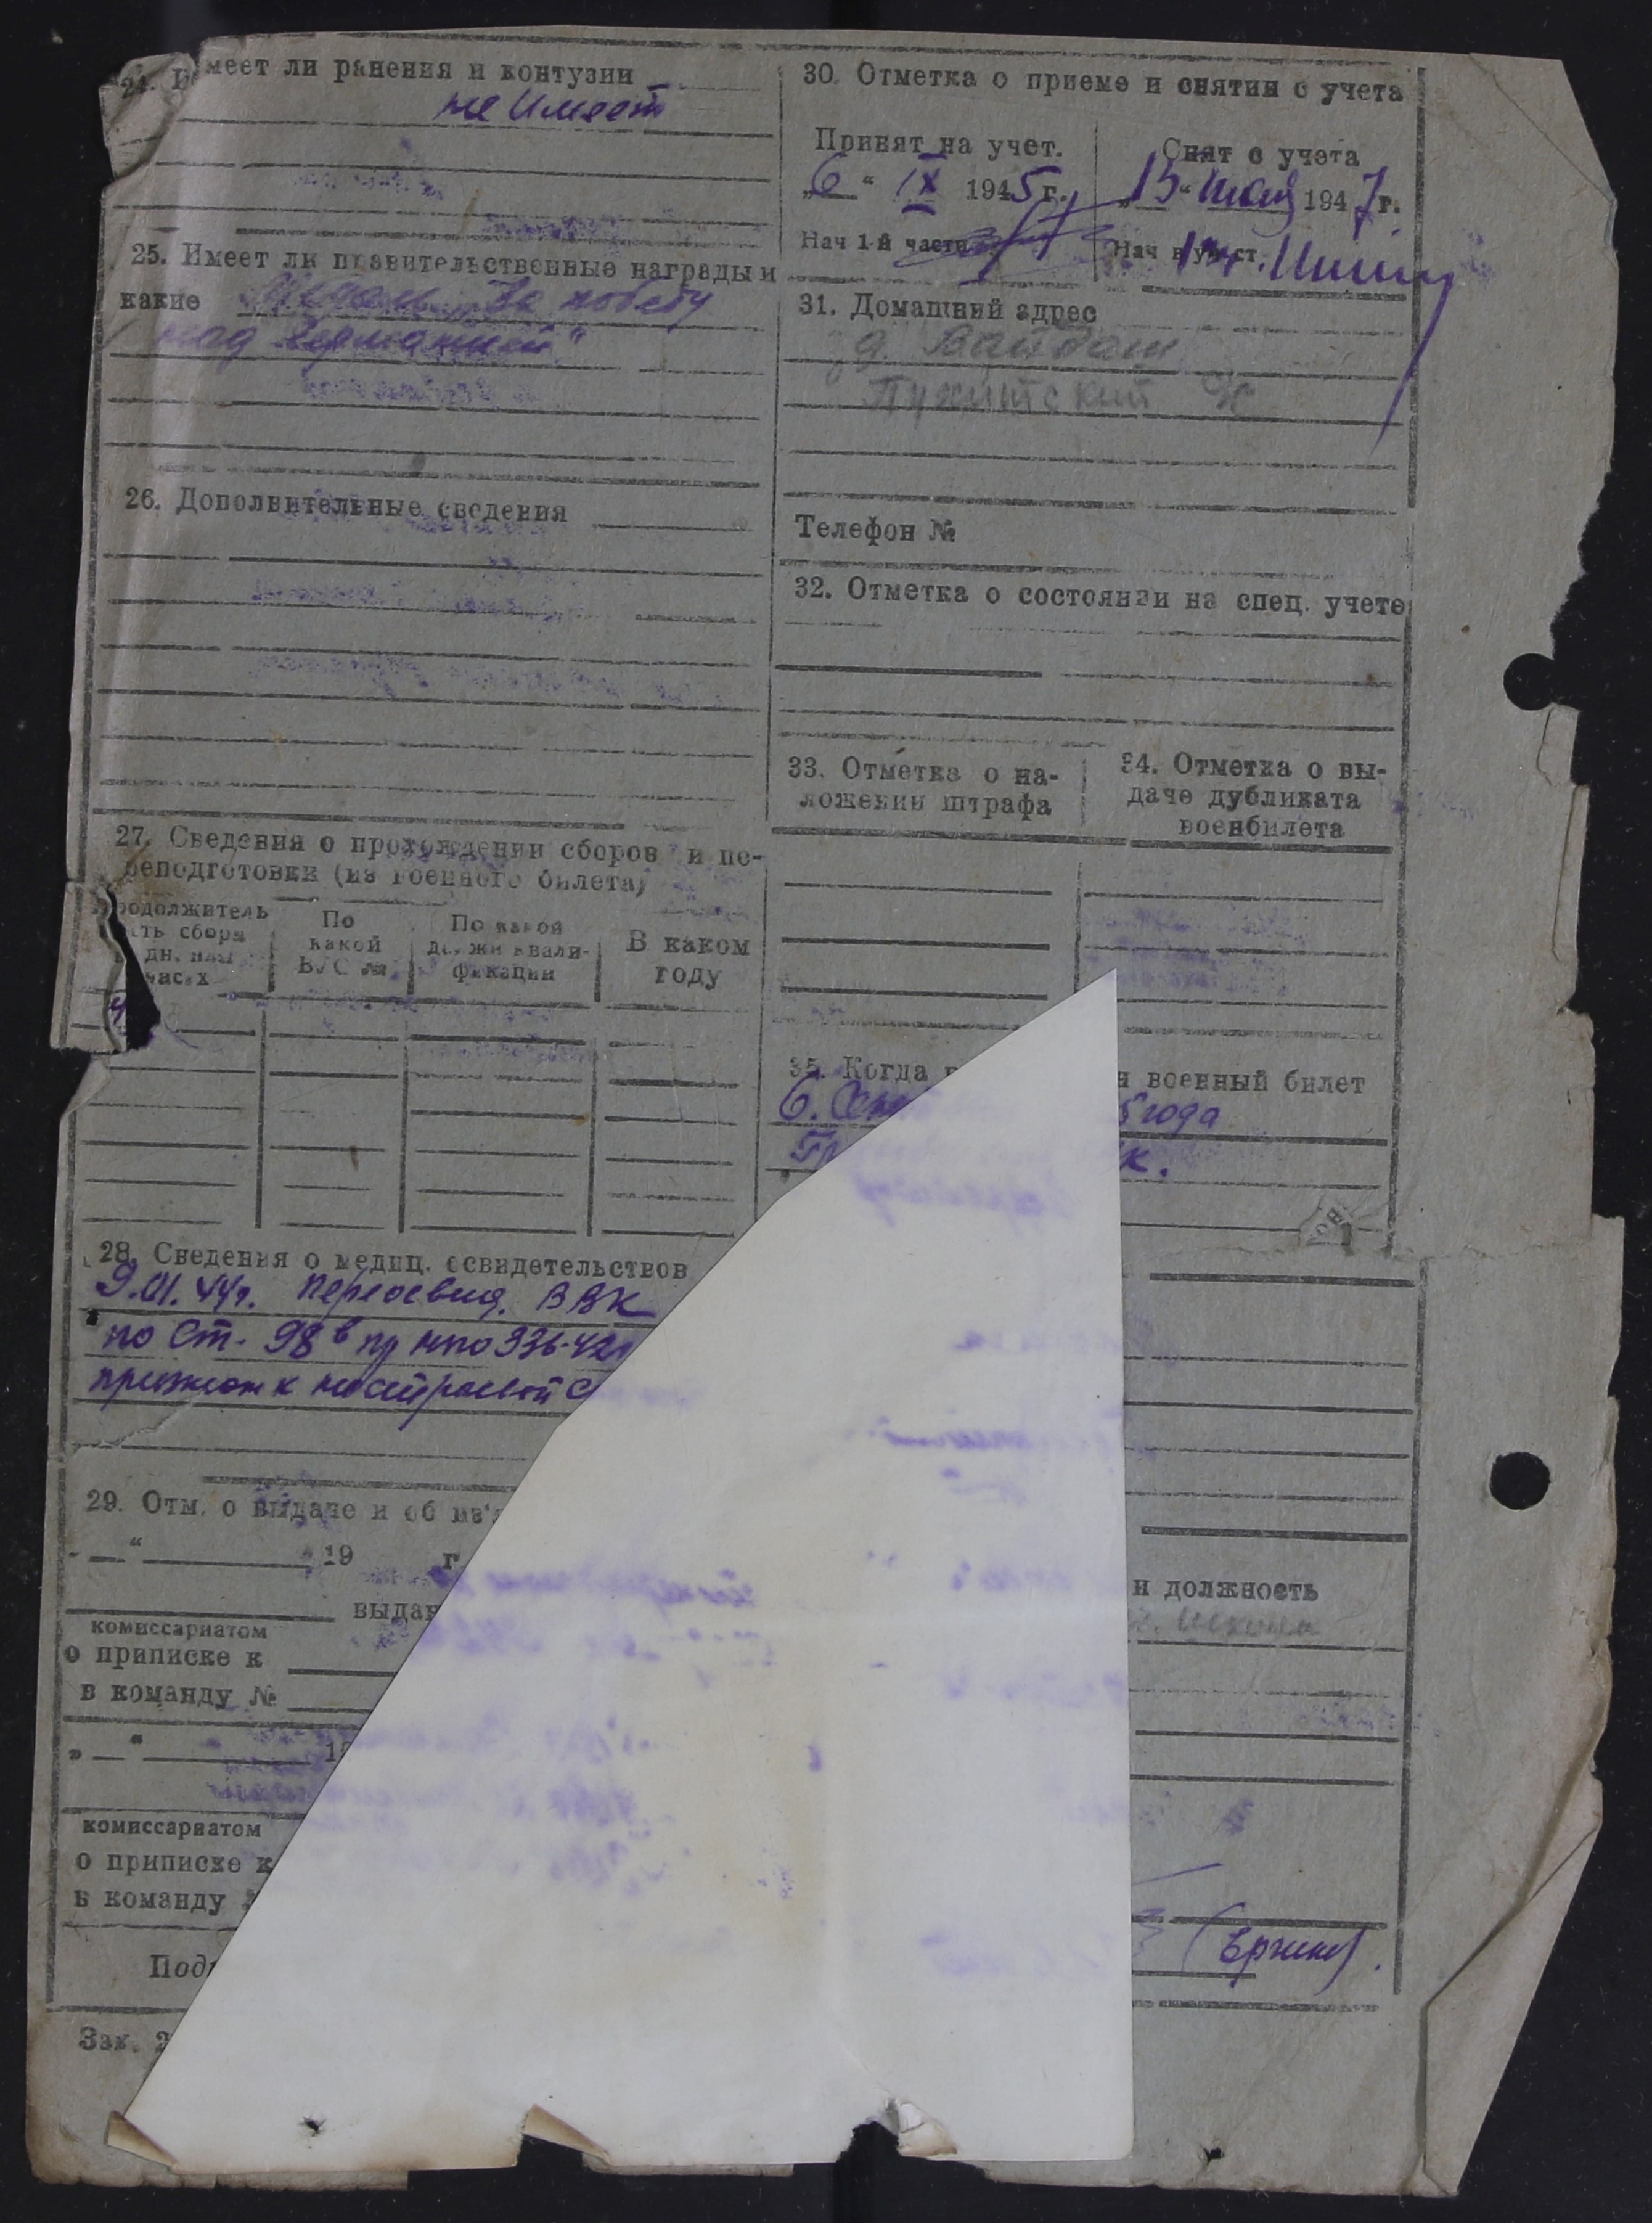 24. Имеет ли ранения и контузии
не имеет
25. Имеет ли правительственные награды и
какие Медаль "За победу
над Германией"
26. Дополнительные сведения
27. Сведения о прохождении сборов и пе-
реподготовки (из военного билета)
родолжитель
сть сбора
дн. или
часах
По
какой
ВУС №
По какой
должн квали-
фикации
В каком
году
28. Сведения о медиц. освидетельствов
9.01.44г. Переосвид. ВВК
по Ст. 98в пр нко 336-42г
признан к нестроевой с
29. Отм. о выдаче и об из'я
" " 19 г
выдан
комиссариатом
о приписке к
в команду №
" " 19
комиссариатом
о приписке к
в команду
Под
Зак. 2
30. Отметка о приеме и снятии с учета
Принят на учет.
„6“ IX 1945 г.
Нач 1-й части
Снят с учета
„15“ мая 1947 г.
Нач
31. Домашний адрес
д.
Телефон №
32. Отметка о состоянии на спец. учете
33. Отметка о на-
ложении штрафа
34. Отметка о вы-
даче дубликата
военбилета
35. Когда н военный билет
6. Сен 5 года
К.
и должность